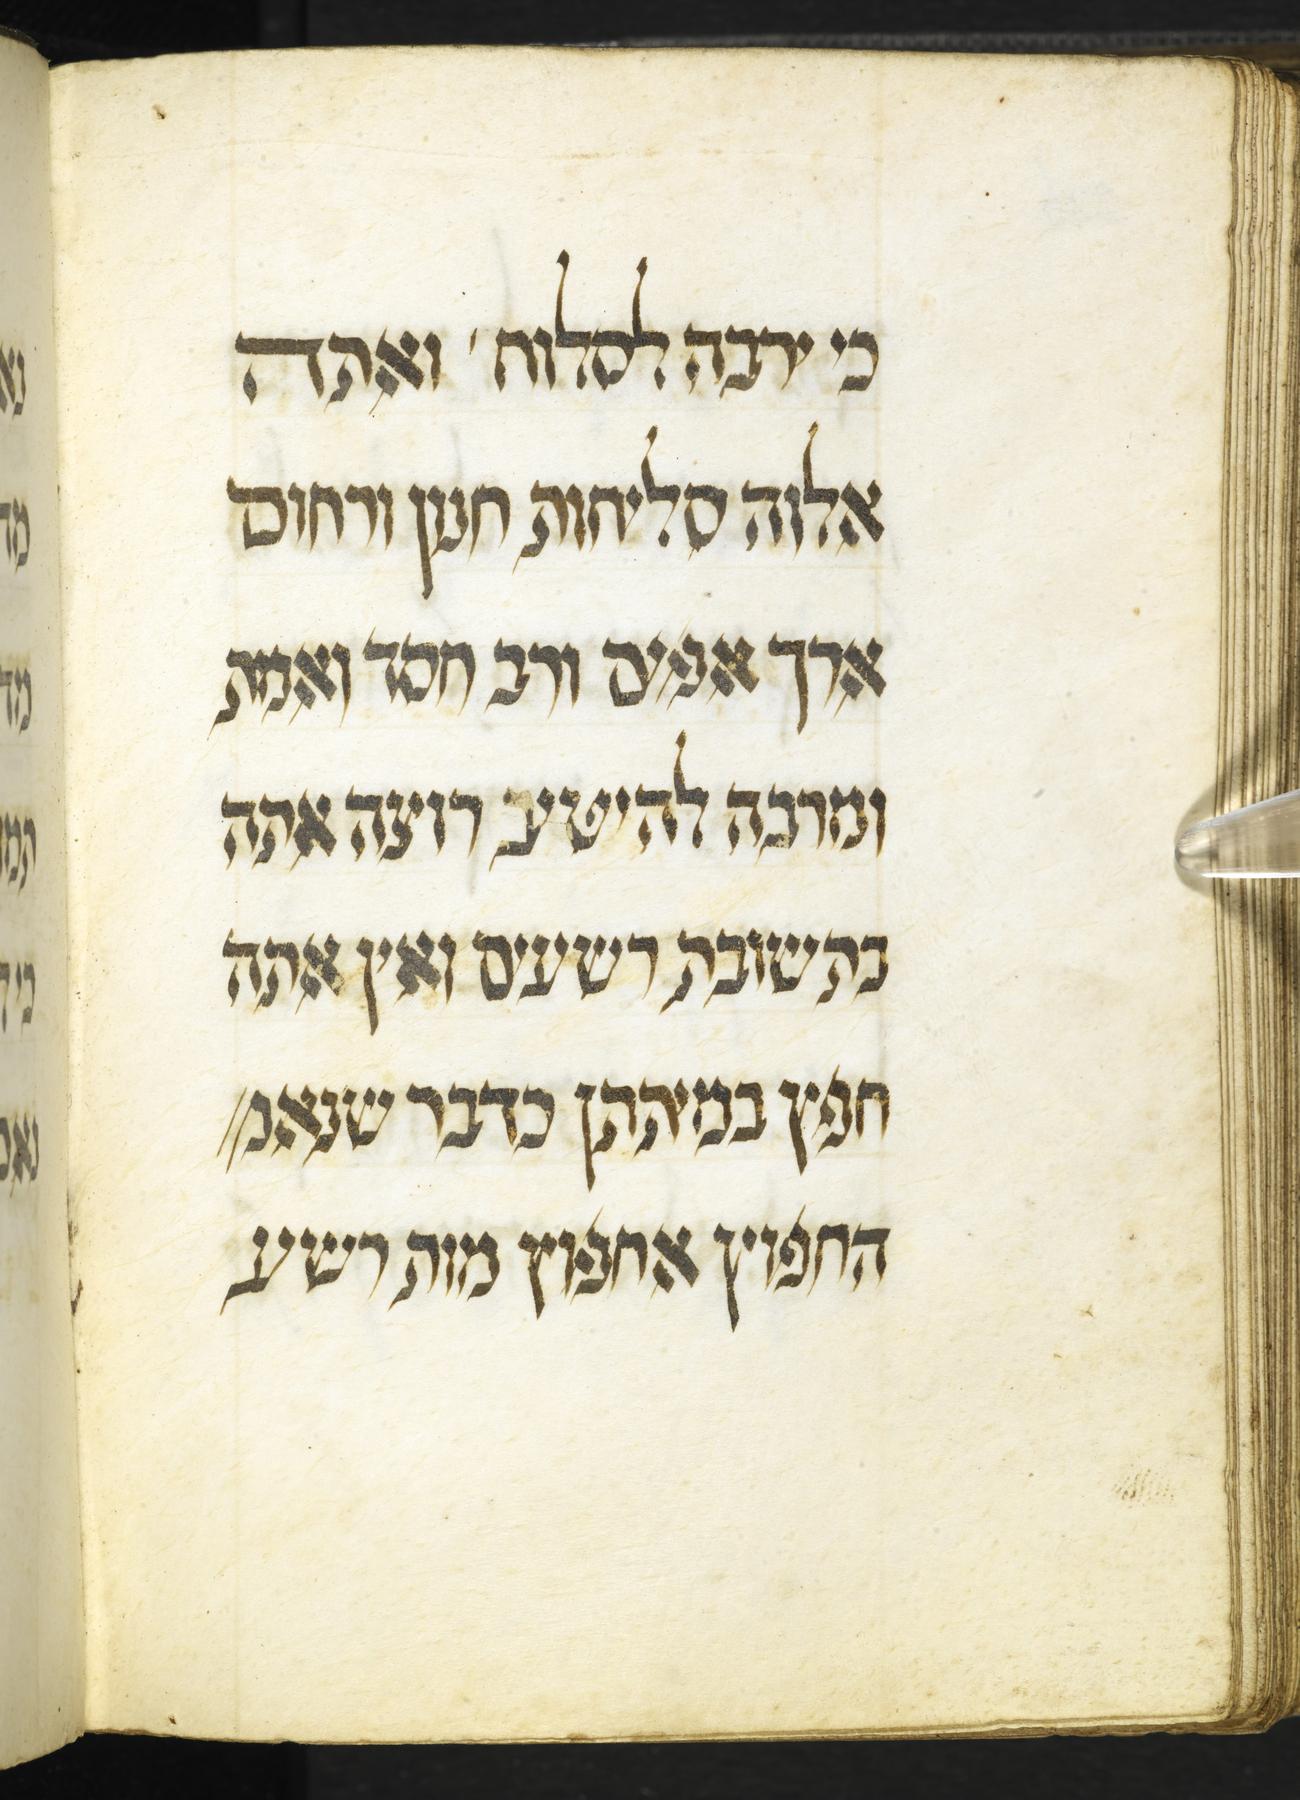 כי ירבה לסלוח׳ ואתה
אלוה סליחות חנון ורחום
ארך אפים ורב חסד ואמת
ומרבה להיטיב רוצה אתה
בתשובת רשעים ואין אתה
חפץ במיתתן כדבר שנאמ//
החפוץ אחפוץ מות רשע